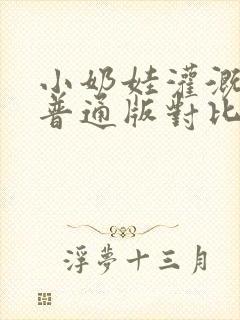 小奶娃灌溉
普通版對比
浮夢十三月